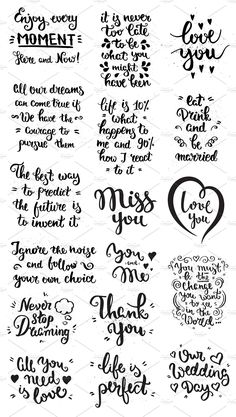 Enjoy every
MOMENT
Here and Now!
it is never
too late
to be
what you
might
have been
love
you
All our dreams
can come true if
We have the
courage to
pursue them
life is 10%
what
happens to
me and 90%
how I react
to it
eat
Drink
and
be
married
The best way
to predict
the future is
to invent it
Miss
you
Love
you
Ignore the noise
and follow
your own choice
You
and
Me
You must
be the
change
you want
to see
in the
World
Never
stop
Dreaming
Thank
you
All You
need is
love
life is
perfect
Our
Wedding
Day